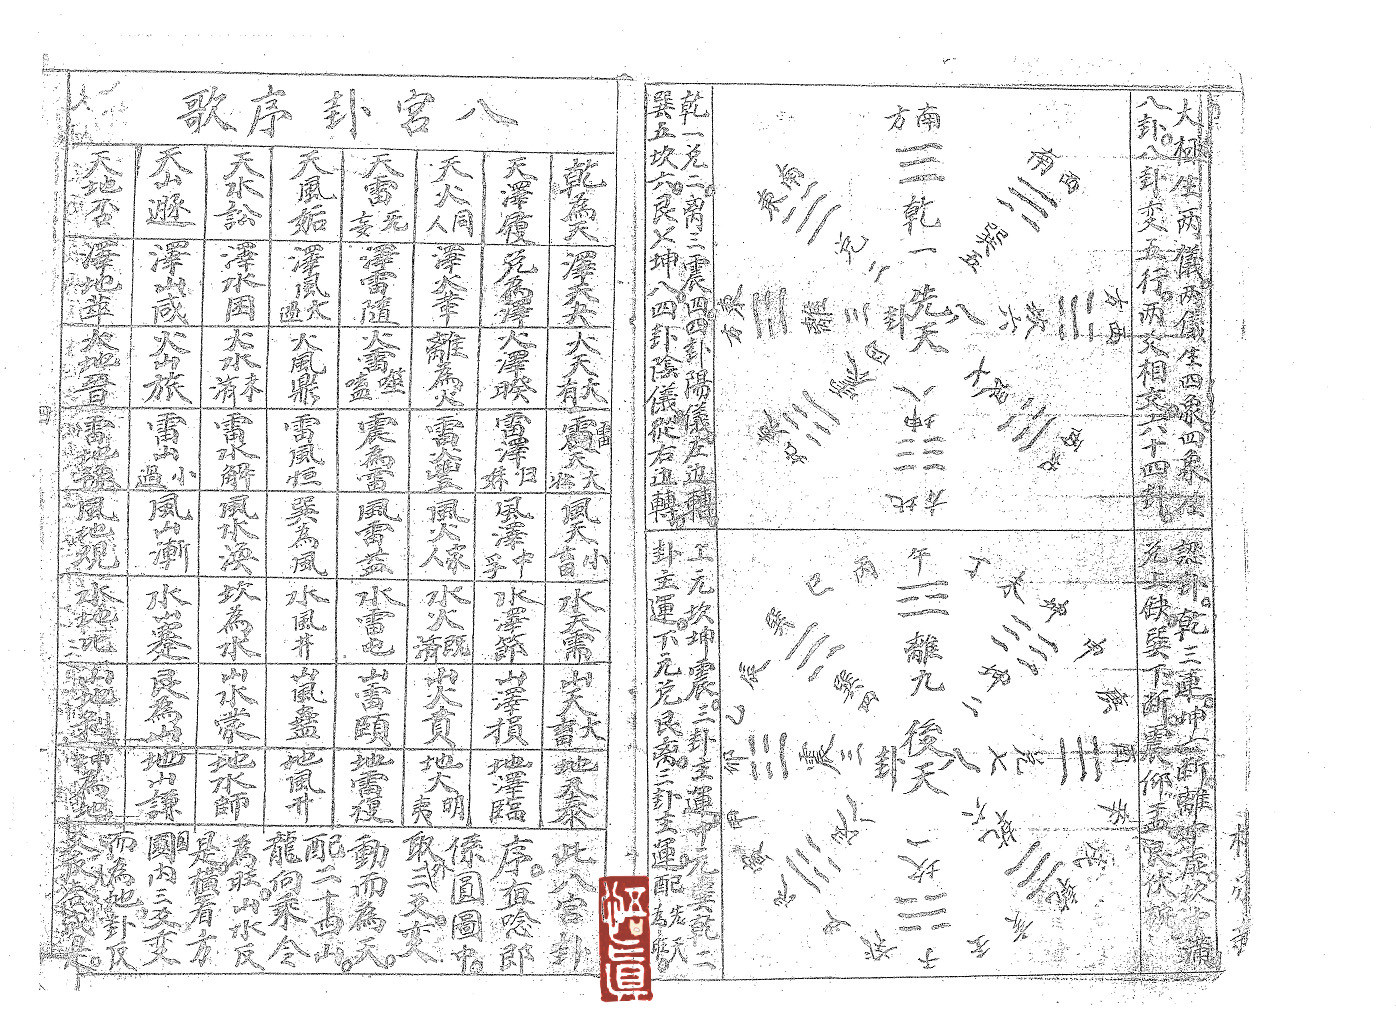 大極生两儀两儀生四象四象生
八卦八卦变五行两爻相交六十四卦
南方
乾一
南西
巽五
西方
坎六
艮七
坤八
北方
震四
東北
東方
離三
東南
兑二
先天八卦
乾一兑二离三震四四卦陽儀左边轉
巽五坎六艮七坤八四卦陰儀從右边轉
認卦乾三連坤六断離中虚坎中滿
兑上缺巽下断震仰盂艮伏碗
午
離九
丁
未
坤二
兑七
乾六
壬
子
坎一
艮八
甲
卯
震三
乙
辰
巽四
巽
巳
丙
後天八卦
上元坎坤震三卦主運中元巽乾二
卦主運下元兑艮离三卦主運配先天為體
八宮卦序歌
乾為天
天澤履
天火同人
天雷无妄
天風姤
天水訟
天山遯
天地否
澤天夬
兑為澤
澤火革
澤雷隨
澤風大過
澤水困
澤山咸
澤地萃
火天大有
火澤睽
離為火
火雷噬嗑
火風鼎
火水未濟
火山旅
火地晋
雷天大壯
雷澤归妹
雷火豐
震為雷
雷風恒
雷水解
雷山小過
雷地豫
風天小畜
風澤中孚
風火家人
風雷益
巽為風
風水渙
風山漸
風地观
水天需
水澤節
水火既濟
水雷屯
水風井
坎為水
水山蹇
水地比
山天大畜
山澤損
山火賁
山雷頤
山風蠱
山水蒙
艮為山
山地剝
地天泰
地澤臨
地火明夷
地雷復
地風升
地水師
地山謙
坤為地
此八宮卦
序值唸郎
係圓圖中
取外三爻变
動而為天
配二十四山
龍向乘令
為旺山水反
是橫看方
圖內三爻变
而為地卦反